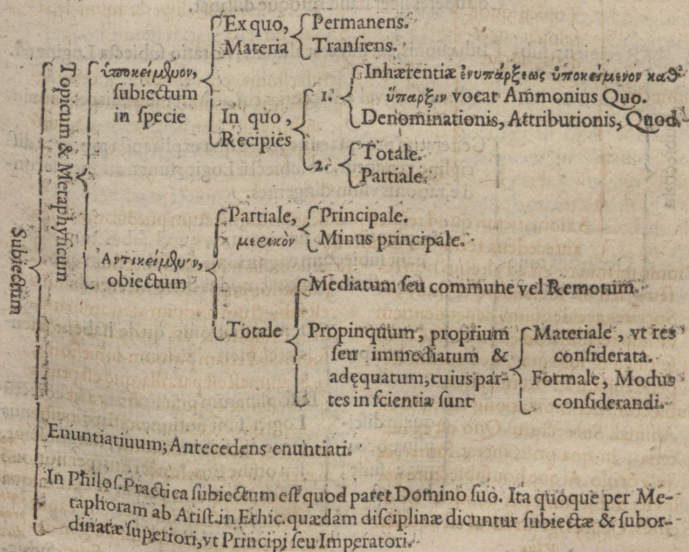 Subiectum
Topicum & Metaphysicum
ὑποκείμενον,
subiectum
in specie
Ex quo,
Materia
Permanens.
Transiens.
In quo,
Recipiēs
1.
Inhærentiæ ἐνυπάρξεως ὑποκείμενον καθ'
ὕπαρξιν vocat Ammonius Quo.
Denominationis, Attributionis, Quod.
2.
Totale.
Partiale.
Ἀντικείμενον,
obiectum
Partiale,
μερικὸν
Principale.
Minus principale.
Totale
Mediatum seu commune vel Remotum
Propinquum, proprium
seu immediatum &
adequatum, cuius par-
tes in scientia sunt
Materiale, vt res
considerata.
Formale, Modus
considerandi.
Enuntiatiuum; Antecedens enuntiati.
In Philos. Practica subiectum est quod paret Domino suo. Ita quoque per Me-
taphoram ab Arist. in Ethic. quædam disciplinæ dicuntur subiectæ & subor-
dinatæ superiori, vt Principi seu Imperatori.